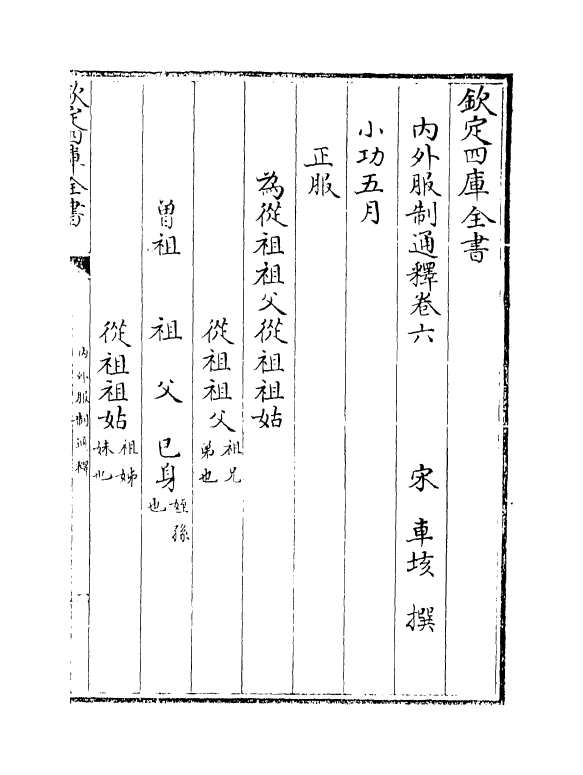 欽定四庫全書
內外服制通釋卷六
宋 車垓 撰
小功五月
正服
為從祖祖父從祖祖姑
從祖祖父 祖兄弟也
曽祖 祖 父 已身 姪孫也
從祖祖姑 祖姊妹也
欽定四庫全書
內外服制通釋
一